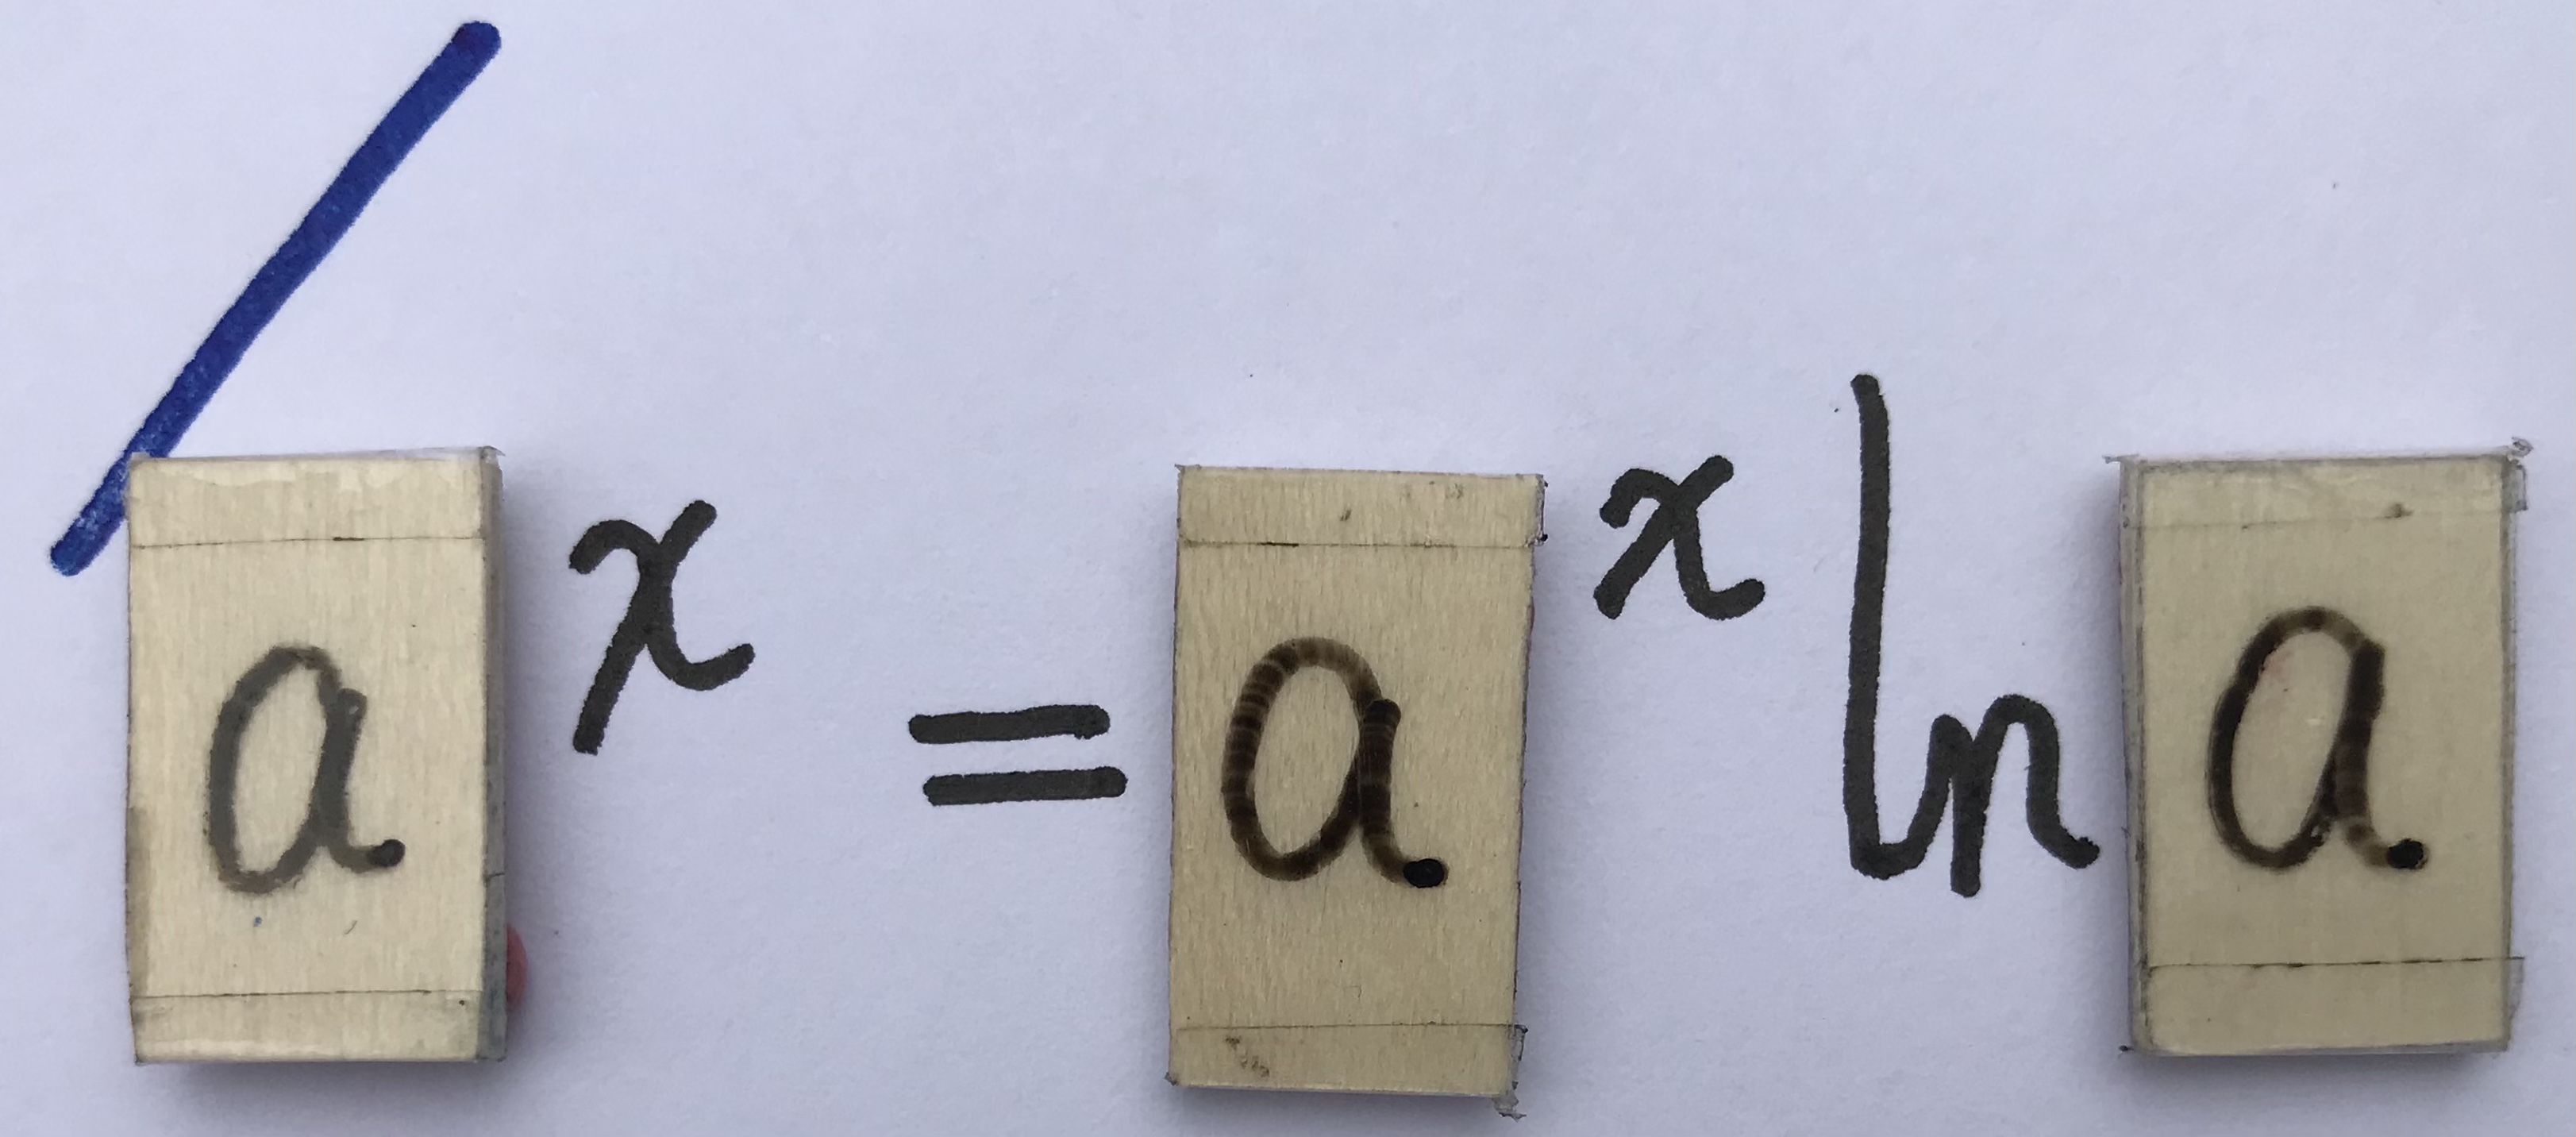 / a^x = a^x ln a